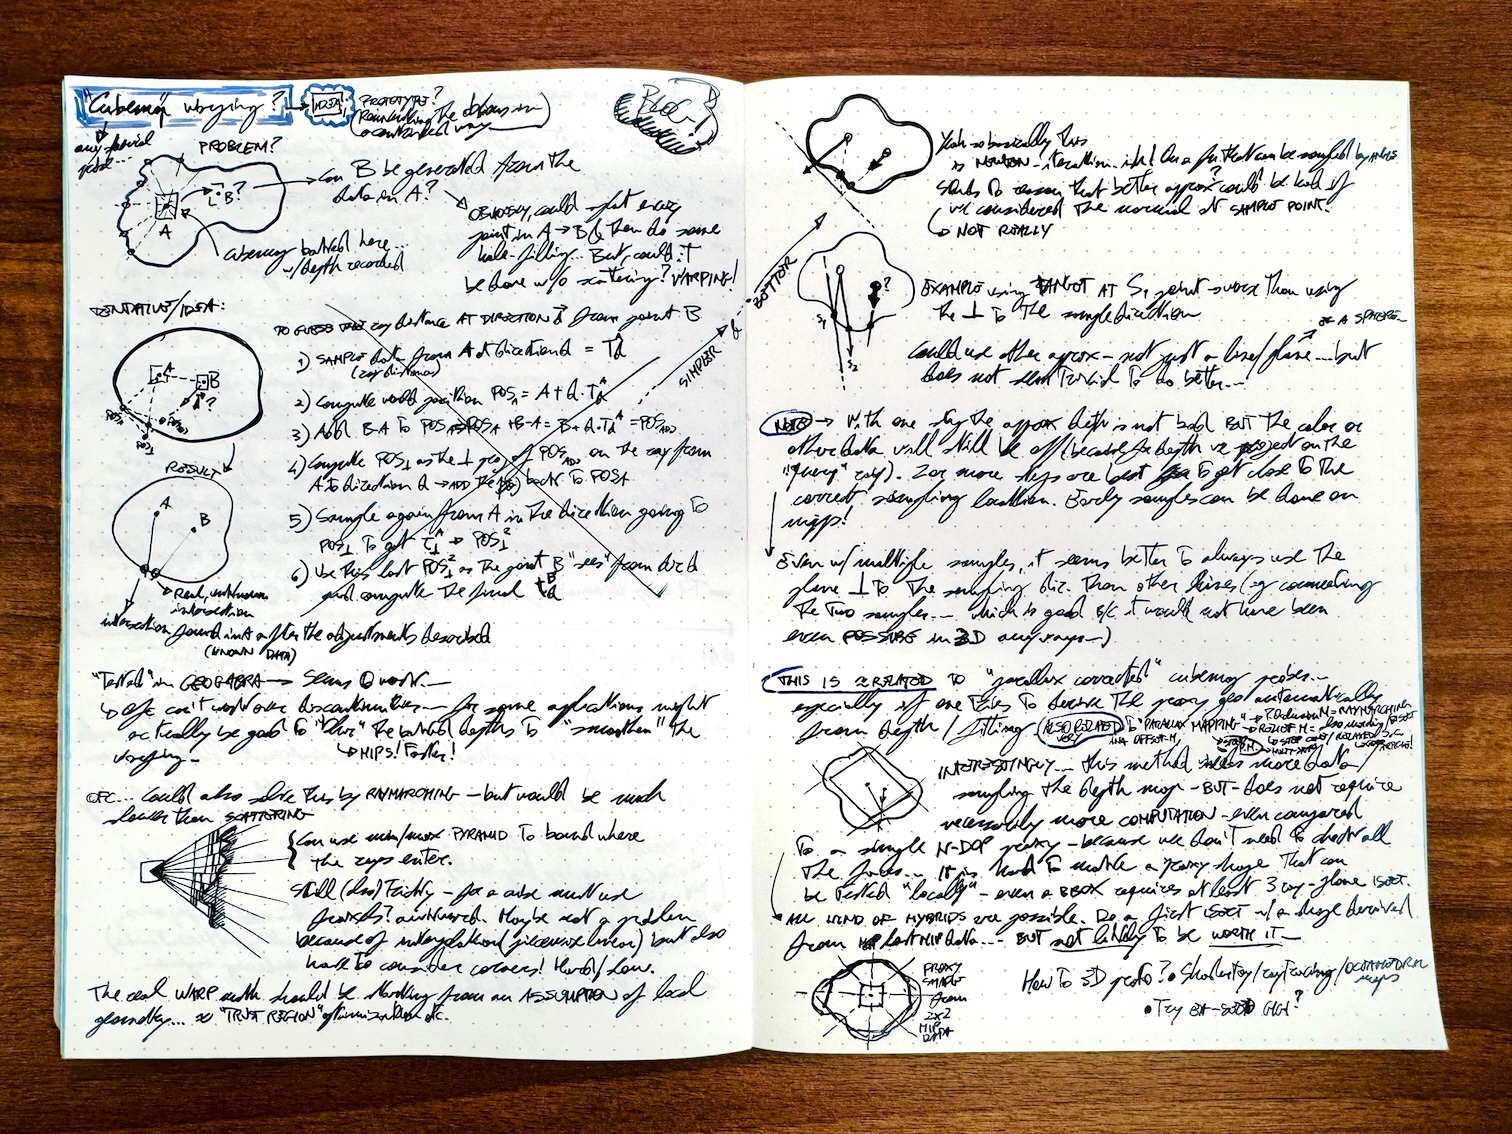 "Cubemap" warping? → IDEA
PROTOTYPE?
BLOG?
any
PROBLEM?
→ can B be generated from the
data in A?
B?
A
cubemap baked here...
w/depth recorded
OBVIOUSLY, could splat every
point in A → B & then do some
hole-filling... But, could it
be done w/o scattering? WARPING!
TENTATIVE/IDEA:
TO GUESS THE ray distance AT DIRECTION d from point B
1) SAMPLE data from A at direction d =
(ray distance)
2) Compute world position POS_A = A + d·T
3) Add B-A to POS
4) Compute POS⊥ as the ⊥ proj of POS on the ray from
A to direction d → ADD the back to POS
5) Sample again from A in the direction going to
POS⊥ to get
6) Use this last POS as the point B "sees" from dir d
and compute the final
SIMPLER &
BETTER
A
B
RESULT
A
B
Real, unknown
intersection
intersection found in A after the adjustments described
(KNOWN DATA)
"Tested" in GEOGEBRA → Seems to work...
↳ OFC can't work over discontinuities... for some applications might
actually be good to "blur" the baked depths to "smoothen" the
warping...
↳ MIPS! Faster!
OFC... Could also solve this by RAYMARCHING - but would be much
slower than SCATTERING
Can use min/max PYRAMID to bound where
the rays enter.
Still (also) tricky - for a cube must use
awkward. Maybe not a problem
because of interpolation (piecewise linear) but also
hard to consider corners! Hard/slow.
The real WARP math should be starting from an ASSUMPTION of local
geometry... so "TRUST REGION" optimization etc.
Yeah so basically this
is NEWTON-iteration-ish! On a fn that can be sampled by
Stands to reason that better approx? could be had if
we considered the normal at SAMPLE POINT.
↳ NOT REALLY
?
S₁
S₂
EXAMPLE using TANGENT AT S₁ point is worse than using
the ⊥ to the sample direction
or A SPHERE
Could use other approx - not just a line/plane... but
does not seem trivial to do better...
NOTE → With one step the approx depth is not bad BUT the color or
other data will still be off (because for depth we project on the
"query" ray). 2 or more steps are best to get close to the
correct sampling location. Early samples can be done on
mips!
Even w/ multiple samples, it seems better to always use the
plane ⊥ to the sampling dir. than other lines (eg connecting
the two samples... which is good b/c it would not have been
even POSSIBLE in 3D anyways...)
THIS IS RELATED to "parallax corrected" cubemap probes...
especially if one tries to derive the proxy geo automatically
from depth/fitting
ALSO RELATED to "PARALLAX MAPPING"
VERY
AKA OFFSET-M.
INTERESTINGLY... this method needs more data/
sampling the depth map - BUT - does not require
necessarily more COMPUTATION - even compared
To a simple N-DOP proxy - because we don't need to check all
the faces... It is hard to make a proxy shape that can
be tested "locally" - even a BBOX requires at least 3 ray-plane ISECT.
ALL KIND OF HYBRIDS are possible. Do a first ISECT w/ a shape derived
from last MIP data... BUT not likely to be WORTH IT...
PROXY
SHAPE
from
2x2
MIP
DATA
How to 3D proto? • Shadertoy/raytracing/OCTAHEDRAL
maps